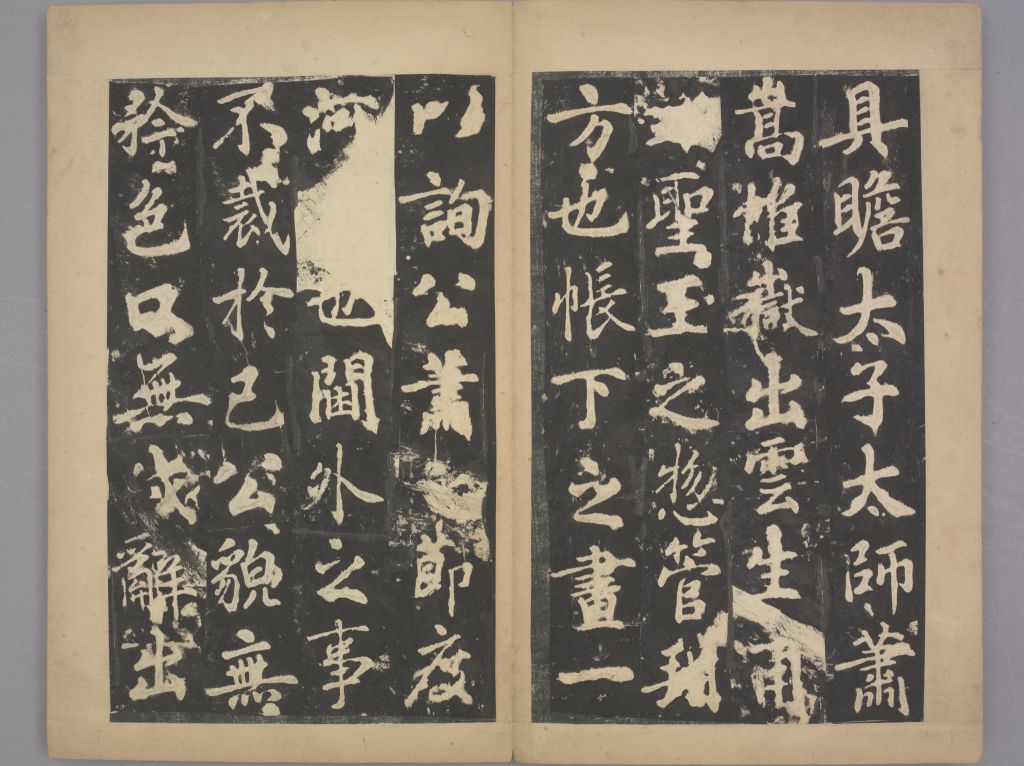 具瞻太子太師蕭
嵩惟嶽出雲生甫
聖王之惣管朔
方也帳下之畫一
以詢公蕭之節度
河也閫外之事
不裁於己公貌無
矜色口無伐辭出